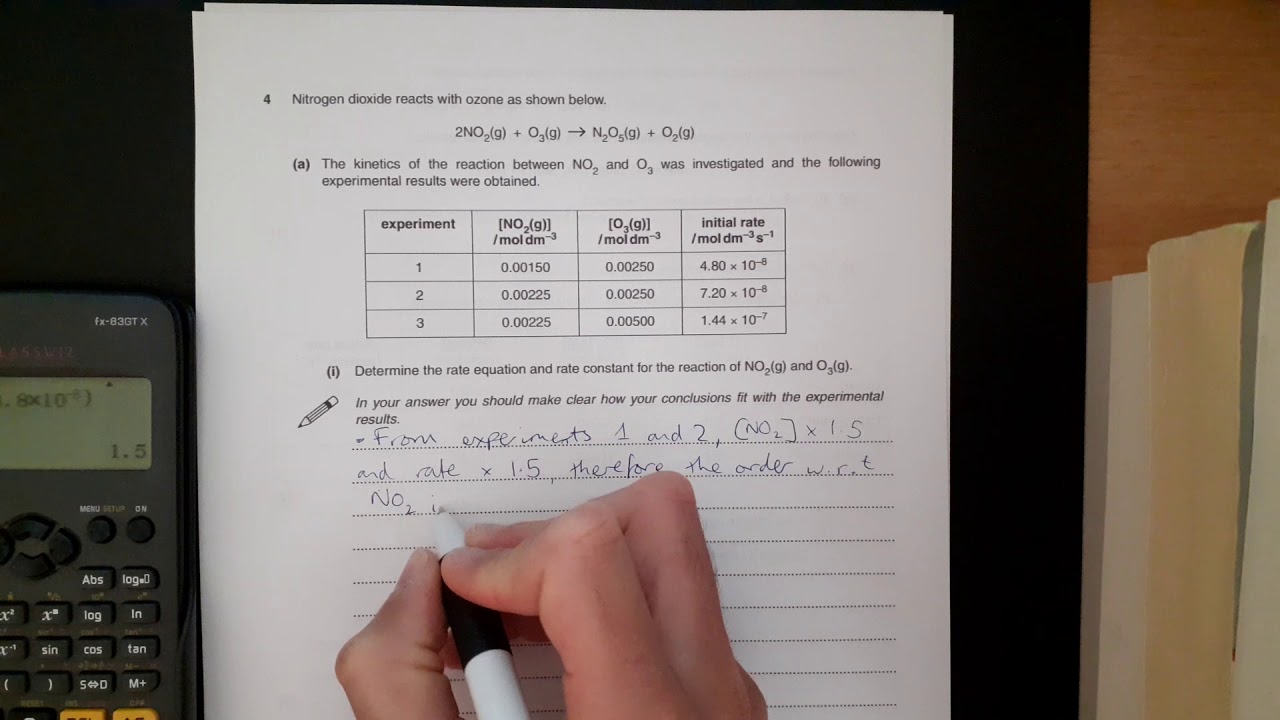 4 Nitrogen dioxide reacts with ozone as shown below.
2NO₂(g) + O₃(g) → N₂O₅(g) + O₂(g)
(a) The kinetics of the reaction between NO₂ and O₃ was investigated and the following
experimental results were obtained.
experiment [NO₂(g)] /mol dm⁻³ [O₃(g)] /mol dm⁻³ initial rate /mol dm⁻³ s⁻¹
1 0.00150 0.00250 4.80 × 10⁻⁸
2 0.00225 0.00250 7.20 × 10⁻⁸
3 0.00225 0.00500 1.44 × 10⁻⁷
(i) Determine the rate equation and rate constant for the reaction of NO₂(g) and O₃(g).
In your answer you should make clear how your conclusions fit with the experimental
results.
- From experiments 1 and 2, [NO₂] × 1.5
and rate × 1.5, therefore the order w.r.t
NO₂ i
fx-83GT X
CLASSWIZ
.8×10⁻⁸)
1.5
MENU SETUP ON
Abs log
x² log ln
sin cos tan
( ) S⇔D M+